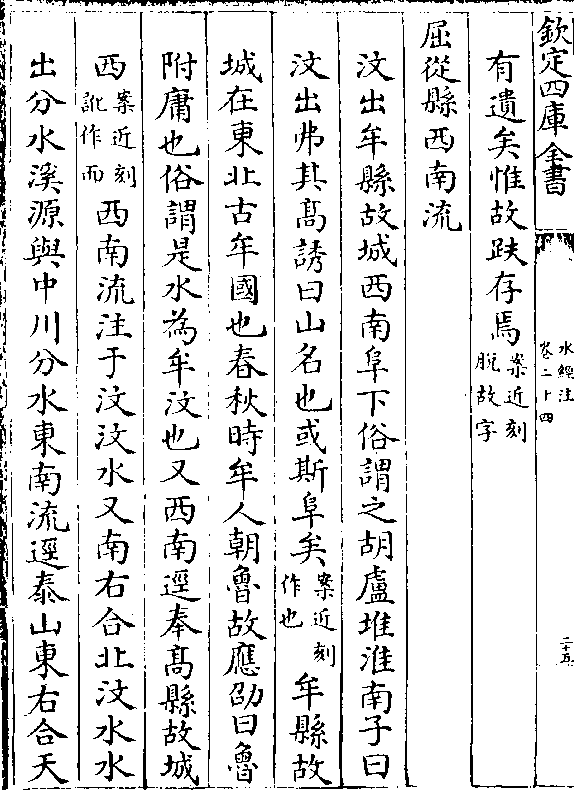 欽定四庫全書
水經注
卷二十四
二十五
有遺矣惟故趺存焉案近刻
脫故字
屈從縣西南流
汶出牟縣故城西南阜下俗謂之胡盧堆淮南子曰
汶出弗其髙誘曰山名也或斯阜矣案近刻
作也牟縣故
城在東北古牟國也春秋時牟人朝魯故應劭曰魯
附庸也俗謂是水為牟汶也又西南逕奉髙縣故城
西案近刻
訛作而西南流注于汶汶水又南右合北汶水水
出分水溪源與中川分水東南流逕泰山東右合天